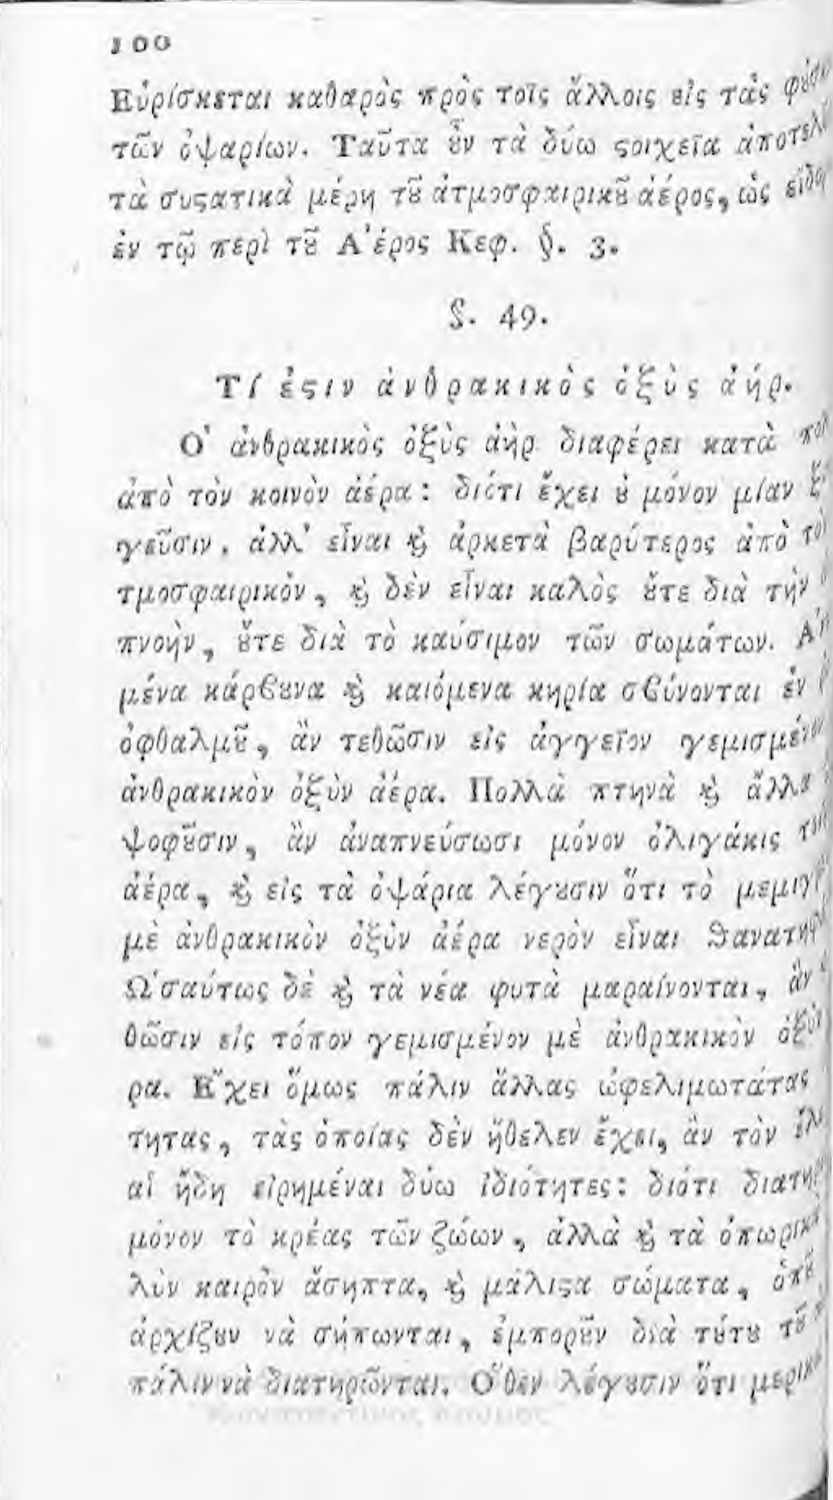 100
Εὑρίσκεται καθαρὸς πρὸς τοῖς ἄλλοις εἰς τὰς
τῶν ὀψαρίων. Ταῦτα ȣ̓ν τὰ δύω ϛοιχεῖα
τὰ συϛατικὰ μέρη τȣ͂ ἀτμοσφαιρικȣ͂ ἀέρος, ὡς
ἐν τῷ περὶ τȣ͂ Α᾿έρος Κεφ. §. 3.
§. 49.
Τί ἐϛιν ἀνθρακικὸς ὀξὺς ἀήρ.
Ο῾ ἀνθρακικὸς ὀξὺς ἀὴρ διαφέρει κατὰ
ἀπὸ τὸν κοινὸν ἀέρα: διότι ἔχει ȣ̓ μόνον μίαν
γεῦσιν, ἀλλ' εἶναι ϗ̀ ἀρκετὰ βαρύτερος ἀπὸ
τμοσφαιρικὸν, ϗ̀ δὲν εἶναι καλὸς ȣ̓́τε διὰ τὴν
πνοὴν, ȣ̓́τε διὰ τὸ καύσιμον τῶν σωμάτων.
μένα κάρβȣνα ϗ̀ καιόμενα κηρία σβύνονται ἐν
ὀφθαλμȣ͂, ἂν τεθῶσιν εἰς ἀγγεῖον
ἀνθρακικὸν ὀξὺν ἀέρα. Πολλὰ πτηνὰ ϗ̀ ἄλλα
ψοφȣ͂σιν, ἂν ἀναπνεύσωσι μόνον ὀλιγάκις
ἀέρα, ϗ̀ εἰς τὰ ὀψάρια λέγȣσιν ὅτι τὸ
μὲ ἀνθρακικὸν ὀξὺν ἀέρα νερὸν εἶναι
Ω῾σαύτως δὲ ϗ̀ τὰ νέα φυτὰ μαραίνονται, ἂν
θῶσιν εἰς τόπον γεμισμένον μὲ ἀνθρακικὸν
ρα. Ε῎χει ὅμως πάλιν ἄλλας ὠφελιμωτάτας
τητας, τὰς ὁποίας δὲν ἤθελεν ἔχει, ἂν τὸν
αἱ ἤδη εἰρημέναι δύω ἰδιότητες: διότι
μόνον τὸ κρέας τῶν ζώων, ἀλλὰ ϗ̀ τὰ
λὺν καιρὸν ἄσηπτα, ϗ̀ μάλιϛα σώματα,
ἀρχίζȣν νὰ σήπωνται, ἐμπορȣ͂ν διὰ τȣ́τȣ τȣ͂
πάλιν νὰ διατηρῶνται. Ο῞θεν λέγȣσιν ὅτι